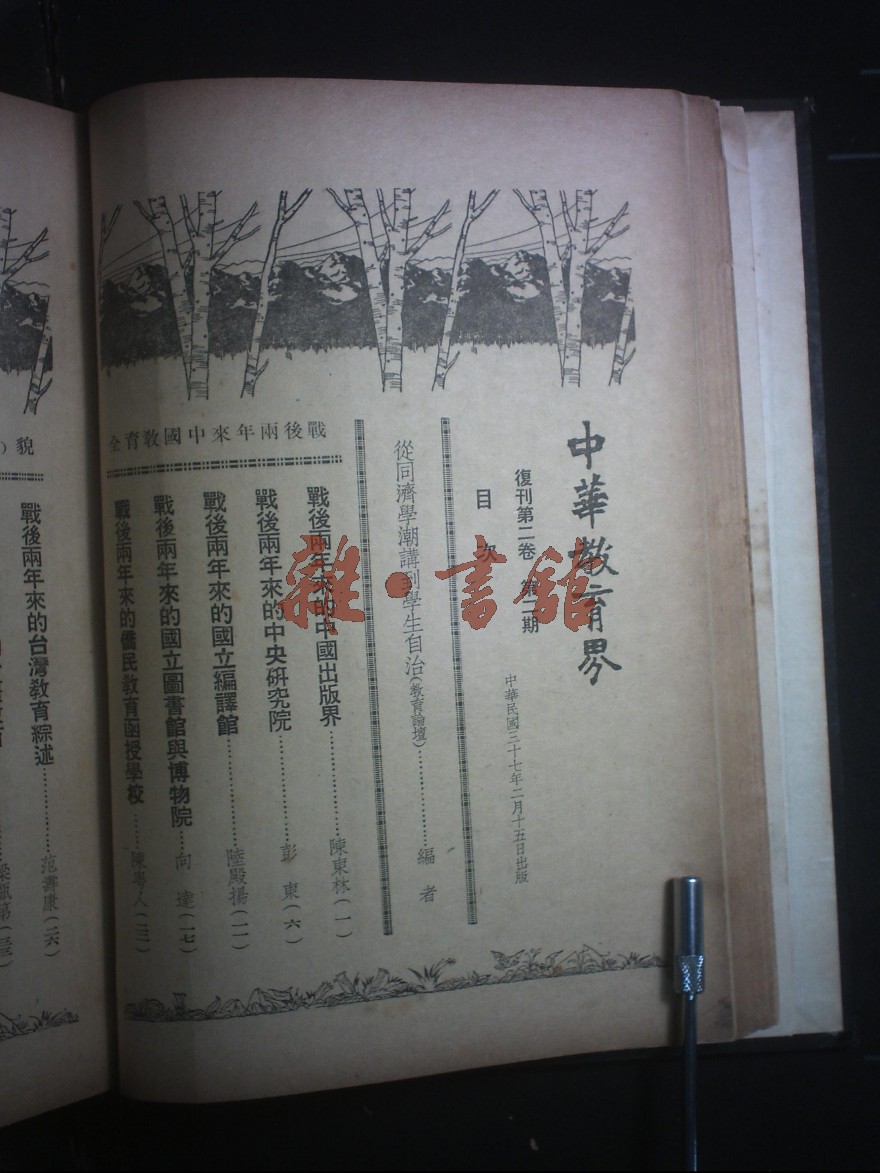 中華教育界
復刊第二卷　第二期
中華民國三十七年二月十五日出版
目　次
從同濟學潮講到學生自治(教育論壇)……………編　者
戰後兩年來中國教育全
戰後兩年來的中國出版界……………陳東林(一)
戰後兩年來的中央研究院……………彭　東(六)
戰後兩年來的國立編譯館……………陸殿揚(一一)
戰後兩年來的國立圖書館與博物院……向　達(一七)
戰後兩年來的僑民教育函授學校……陳粵人(二二)
貌(
戰後兩年來的台灣教育綜述……………范壽康(二六)
雜·書館